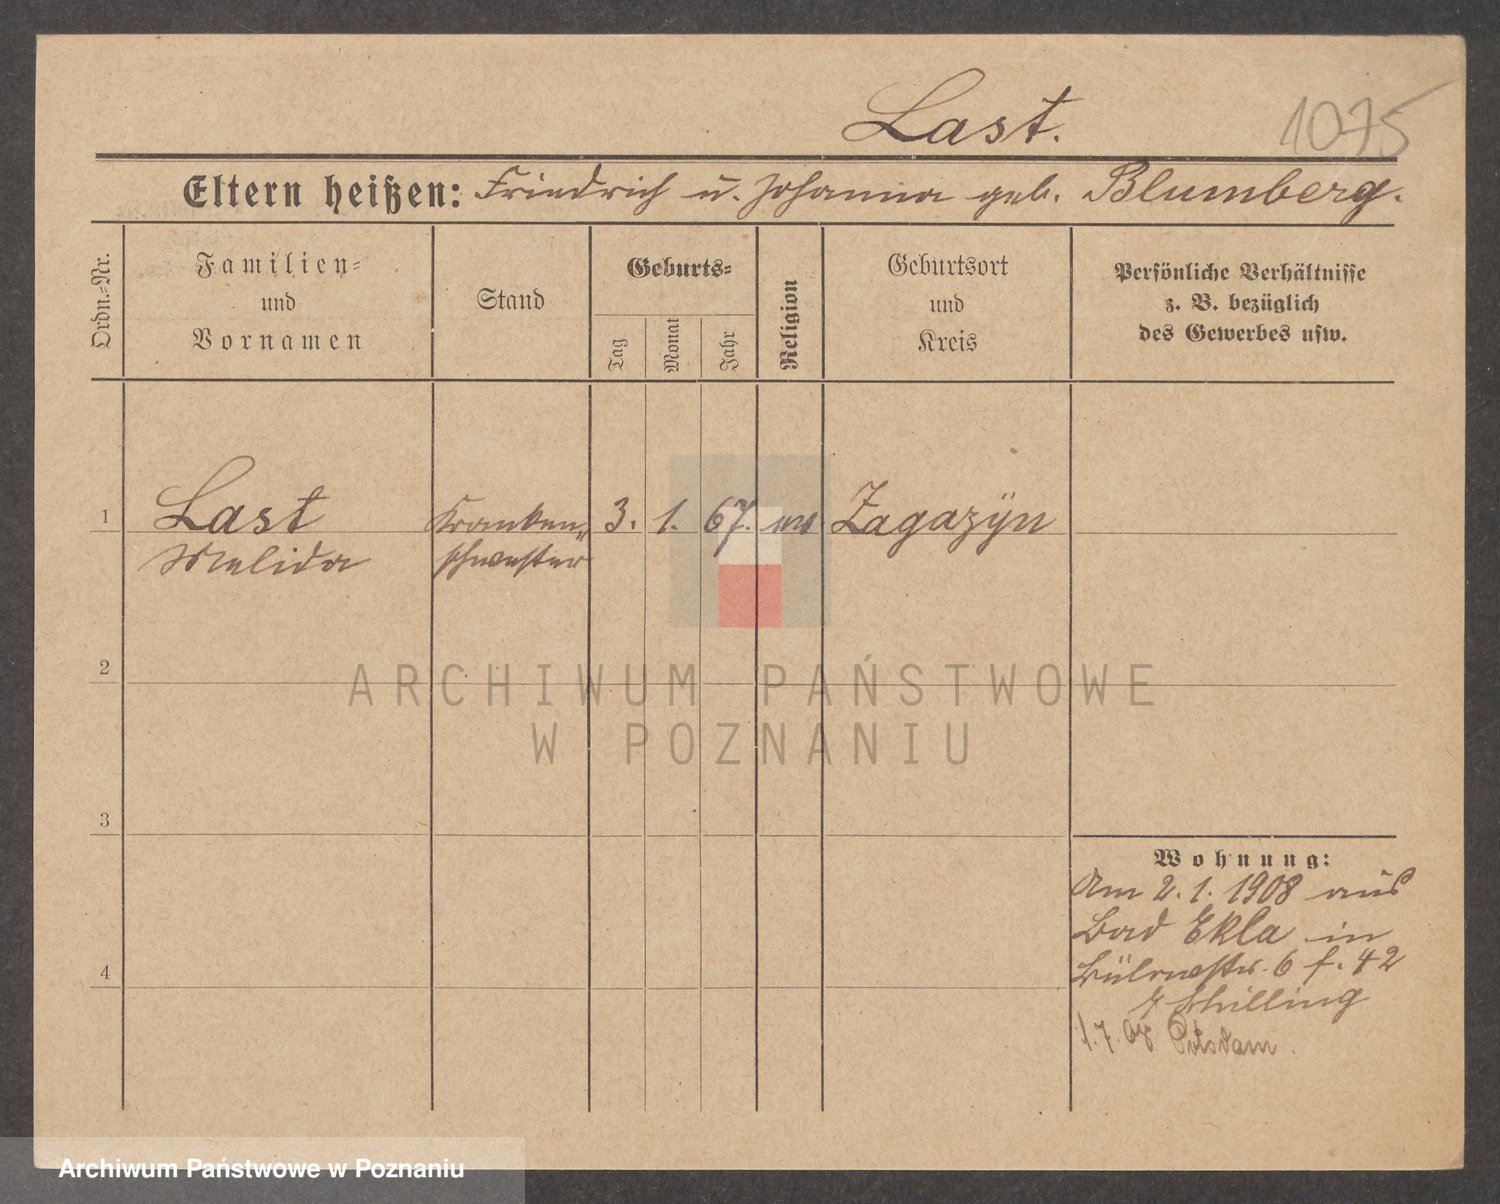 Last.
1075
Eltern heißen: Friedrich u. Johanna geb. Blumberg.
Ordn.-Nr.
Familien-
und
Vornamen
Stand
Geburts-
Tag
Monat
Jahr
Religion
Geburtsort
und
Kreis
Persönliche Verhältnisse
z. B. bezüglich
des Gewerbes usw.
1
Last
Melida
Kranken-
schwester
3. 1. 67.
Zagazÿn
2
3
4
Wohnung:
Am 2. 1. 1908 aus
Bad in
6 42
Schilling
1. 7. Potsdam.
ARCHIWUM PAŃSTWOWE
W POZNANIU
Archiwum Państwowe w Poznaniu